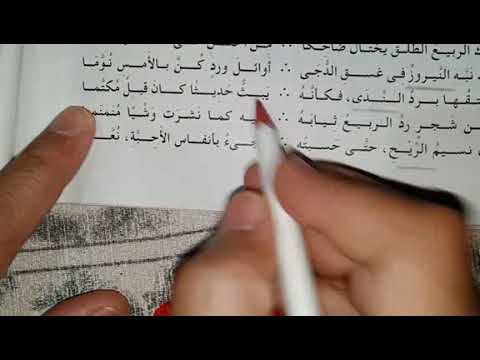 الربيع الطلق يختال ضاحكا ∴ من
نبّه النيروز فى غسق الدّجى ∴ أوائل ورد كنّ بالأمس نوّما
برد النّدى، فكأنّه ∴ يبثّ حديثا كان قبل مكتّما
شجر ردّ الربيع ثيابه ∴ كما نشرت وشيا منمنما
نسيم الرّيح، حتّى حسبته ∴ بأنفاس الأحبّة،